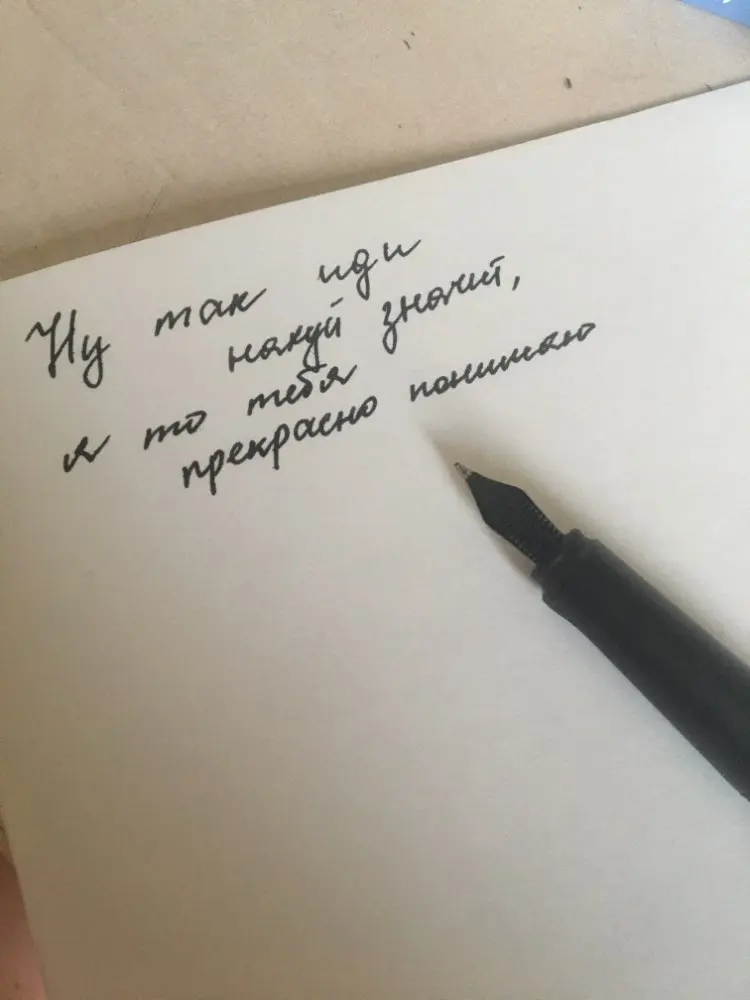 Ну так иди
нахуй значит,
я то тебя
прекрасно понимаю